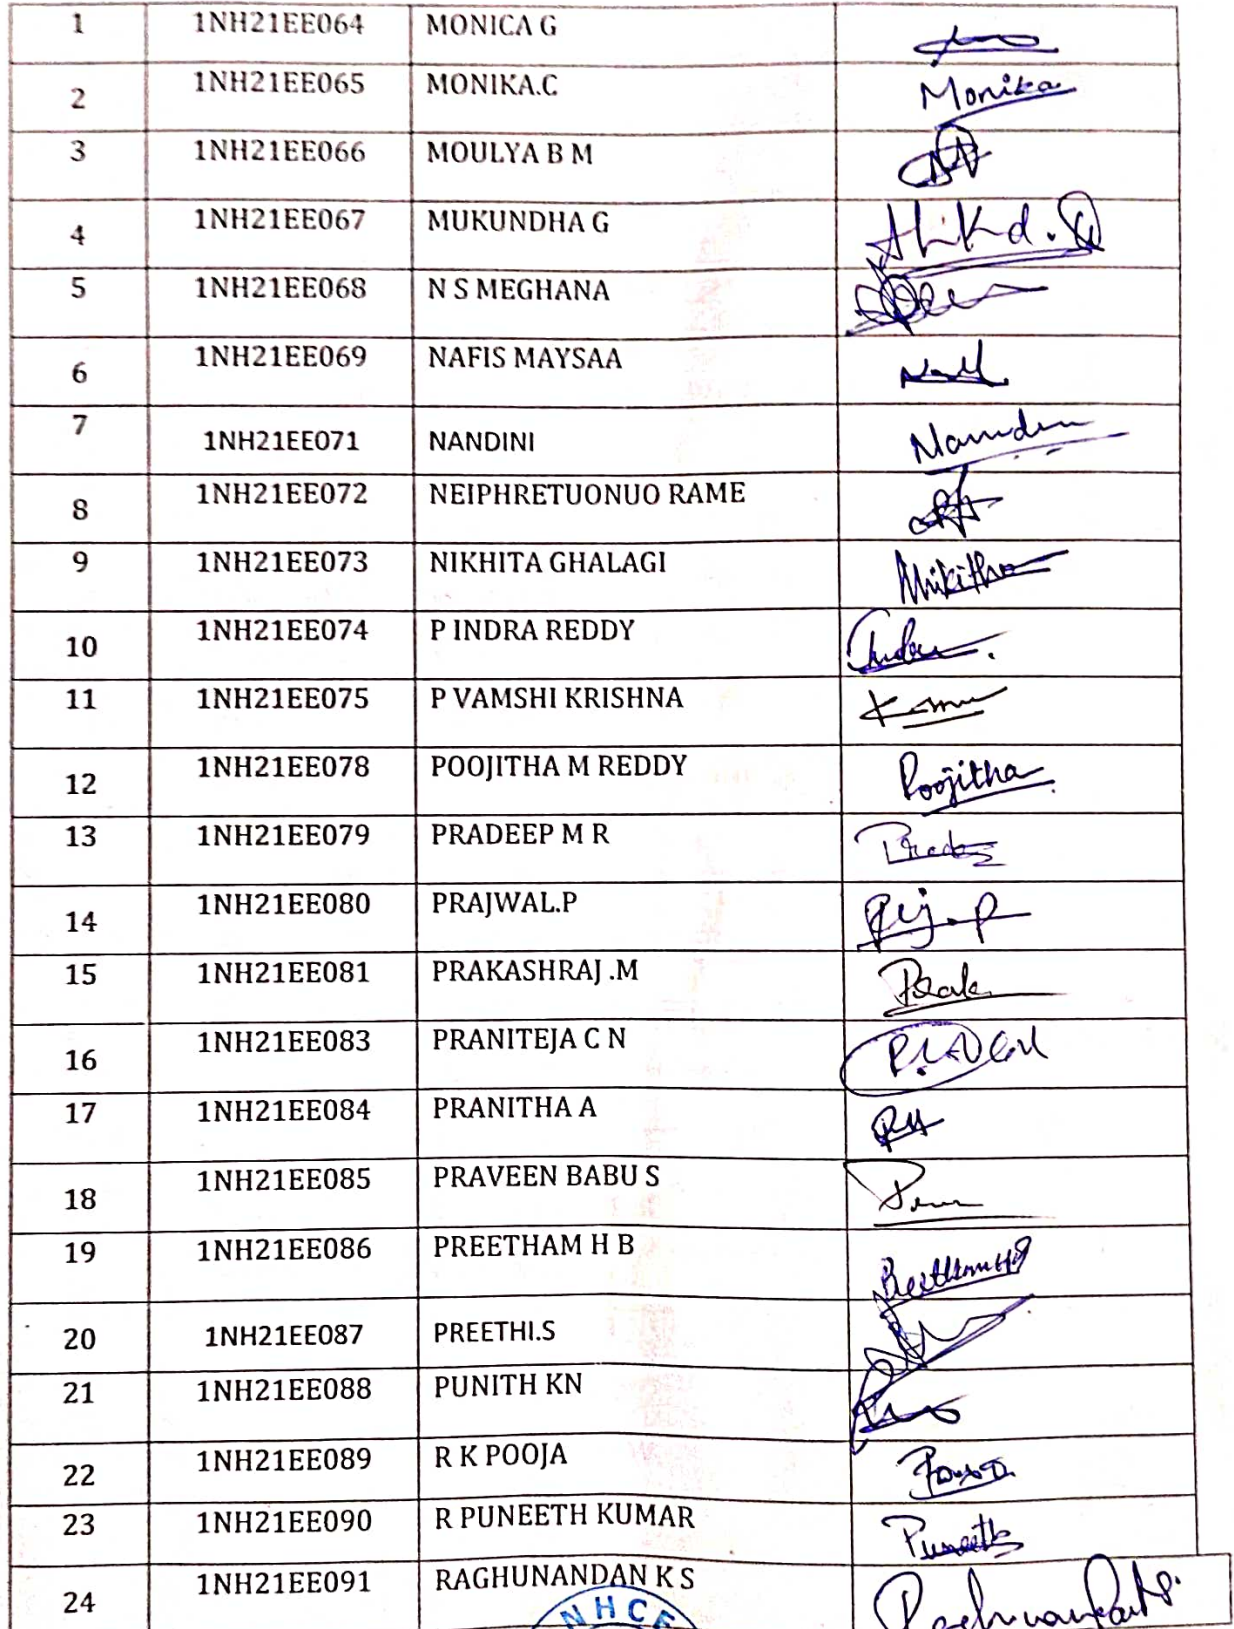 1 1NH21EE064 MONICA G
2 1NH21EE065 MONIKA.C Monika
3 1NH21EE066 MOULYA B M
4 1NH21EE067 MUKUNDHA G
5 1NH21EE068 N S MEGHANA
6 1NH21EE069 NAFIS MAYSAA
7 1NH21EE071 NANDINI
8 1NH21EE072 NEIPHRETUONUO RAME
9 1NH21EE073 NIKHITA GHALAGI
10 1NH21EE074 P INDRA REDDY
11 1NH21EE075 P VAMSHI KRISHNA
12 1NH21EE078 POOJITHA M REDDY Poojitha
13 1NH21EE079 PRADEEP M R
14 1NH21EE080 PRAJWAL.P
15 1NH21EE081 PRAKASHRAJ .M
16 1NH21EE083 PRANITEJA C N
17 1NH21EE084 PRANITHA A
18 1NH21EE085 PRAVEEN BABU S
19 1NH21EE086 PREETHAM H B
20 1NH21EE087 PREETHI.S
21 1NH21EE088 PUNITH KN
22 1NH21EE089 R K POOJA
23 1NH21EE090 R PUNEETH KUMAR Puneeth
24 1NH21EE091 RAGHUNANDAN K S
NHCE